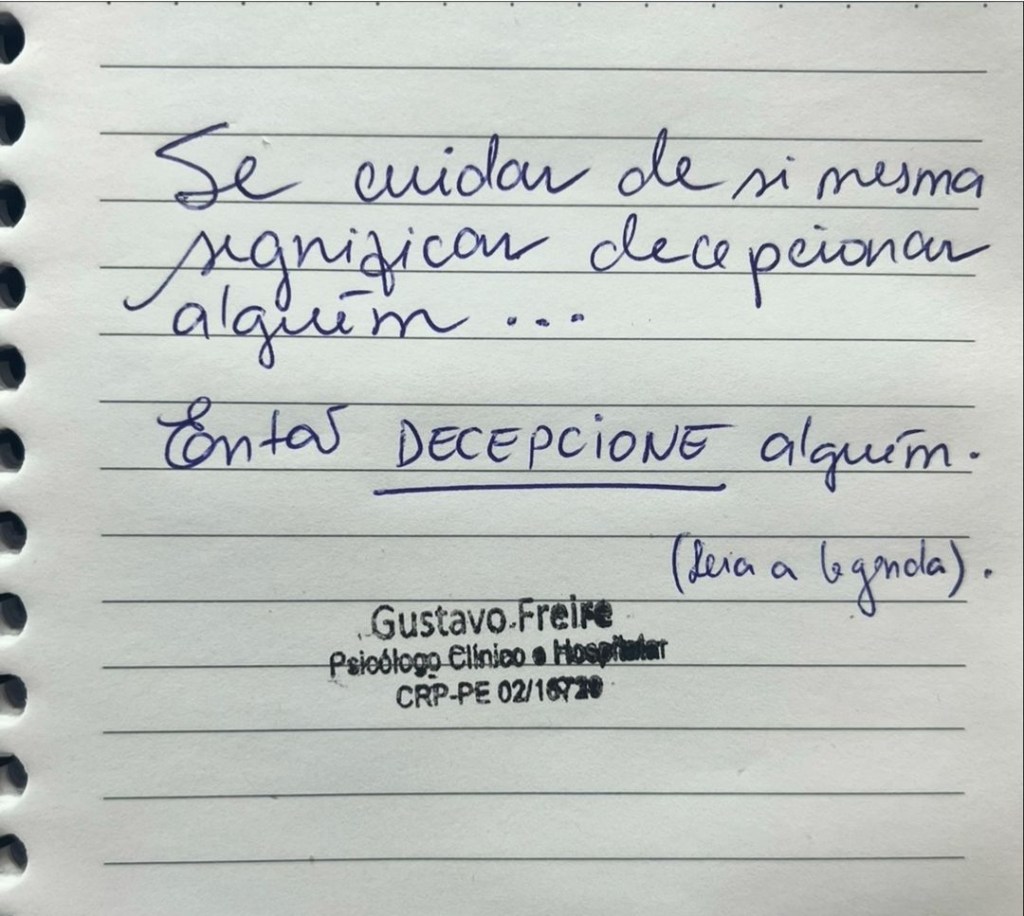 Se cuidar de si mesma
significar decepcionar
alguém ...
Então DECEPCIONE alguém.
(Leia a legenda).
Gustavo Freire
Psicólogo Clínico e Hospitalar
CRP-PE 02/16720